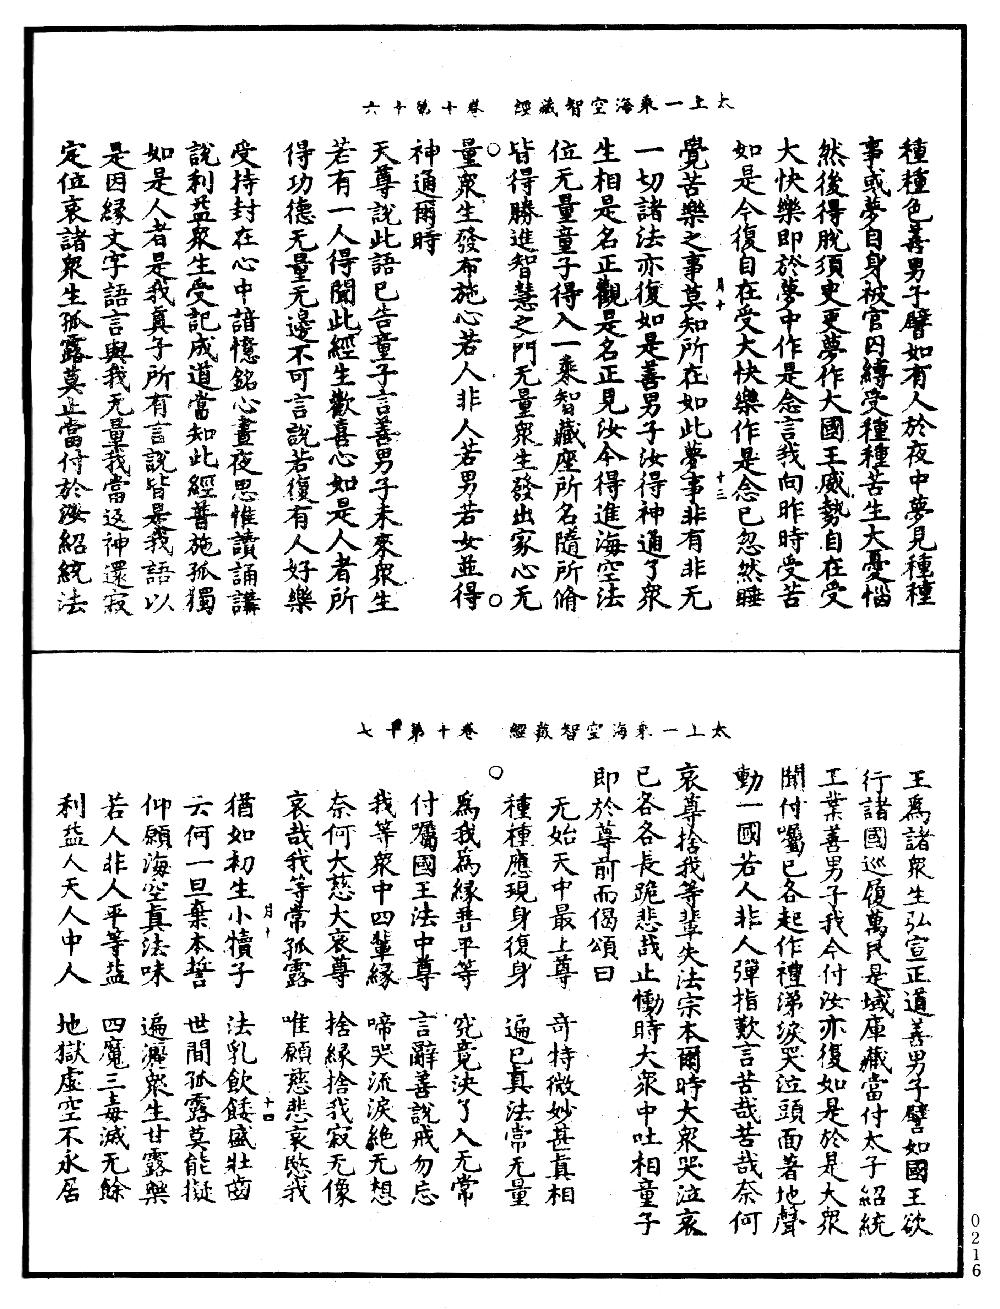 太上一乘海空智藏經　卷十第十六
種種色善男子譬如有人於夜中夢見種種
事或夢自身被官囚縛受種種苦生大憂惱
然後得脫須臾更夢作大國王威勢自在受
大快樂即於夢中作是念言我向昨時受苦
如是今復自在受大快樂作是念已忽然睡
月十　十三
覺苦樂之事莫知所在如此夢事非有非无
一切諸法亦復如是善男子汝得神通了衆
生相是名正觀是名正見汝今得進海空法
位无量童子得入一乘智藏座所名隨所脩
皆得勝進智慧之門无量衆生發出家心无
量衆生發布施心若人非人若男若女並得
神通爾時
天尊說此語已告童子言善男子未來衆生
若有一人得聞此經生歡喜心如是人者所
得功德无量无邊不可言說若復有人好樂
受持封在心中諳憶銘心晝夜思惟讀誦講
說利益衆生受記成道當知此經普施孤獨
如是人者是我真子所有言說皆是我語以
是因緣文字語言與我无量我當返神還寂
定位哀諸衆生孤露莫止當付於汝紹統法
太上一乘海空智藏經　卷十第十七
王爲諸衆生弘宣正道善男子譬如國王欲
行諸國巡履萬民是域庫藏當付太子紹統
工業善男子我今付汝亦復如是於是大衆
聞付囑已各起作禮涕淚哭泣頭面著地聲
動一國若人非人彈指歎言苦哉苦哉奈何
哀尊捨我等輩失法宗本爾時大衆哭泣哀
已各各長跪悲哉止慟時大衆中吐相童子
即於尊前而偈頌曰
无始天中最上尊　奇特微妙甚真相
種種應現身復身　遍已真法常无量
爲我爲緣善平等　究竟決了入无常
付囑國王法中尊　言辭善說戒勿忘
我等衆中四輩緣　啼哭流淚絕无想
奈何大慈大哀尊　捨緣捨我寂无像
哀哉我等常孤露　唯願慈悲哀愍我
月十　十四
猶如初生小犢子　法乳飲餧盛壯齒
云何一旦棄本誓　世間孤露莫能擬
仰願海空真法味　遍灑衆生甘露藥
若人非人平等益　四魔三毒滅无餘
利益人天人中人　地獄虛空不永居
0216